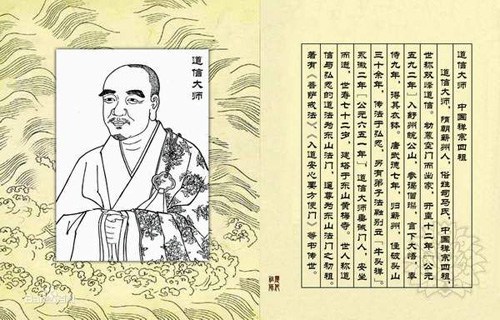 道信大师
道信大师　中国禅宗四祖
道信大师，隋朝蕲州人，俗姓司马氏，中国禅宗四祖，
世称双峰道信。幼慕空门而出家，开皇十二年（公元
五九二年）入舒州皖公山，参谒僧璨，言下大悟，奉
侍九年，得其衣钵。唐武德七年，归蕲州，住破头山
三十余年，传法于弘忍，另有弟子法融别立「牛头禅」
永徽二年（公元六五一年），道信大师垂诫门人，安坐
而逝，世寿七十二岁，建塔于东山黄梅寺。世人称道
信与弘忍的道法为东山法门，遥尊为东山法门之初祖。
著有《菩萨戒法》、《入道安心要方便门》等书传世。